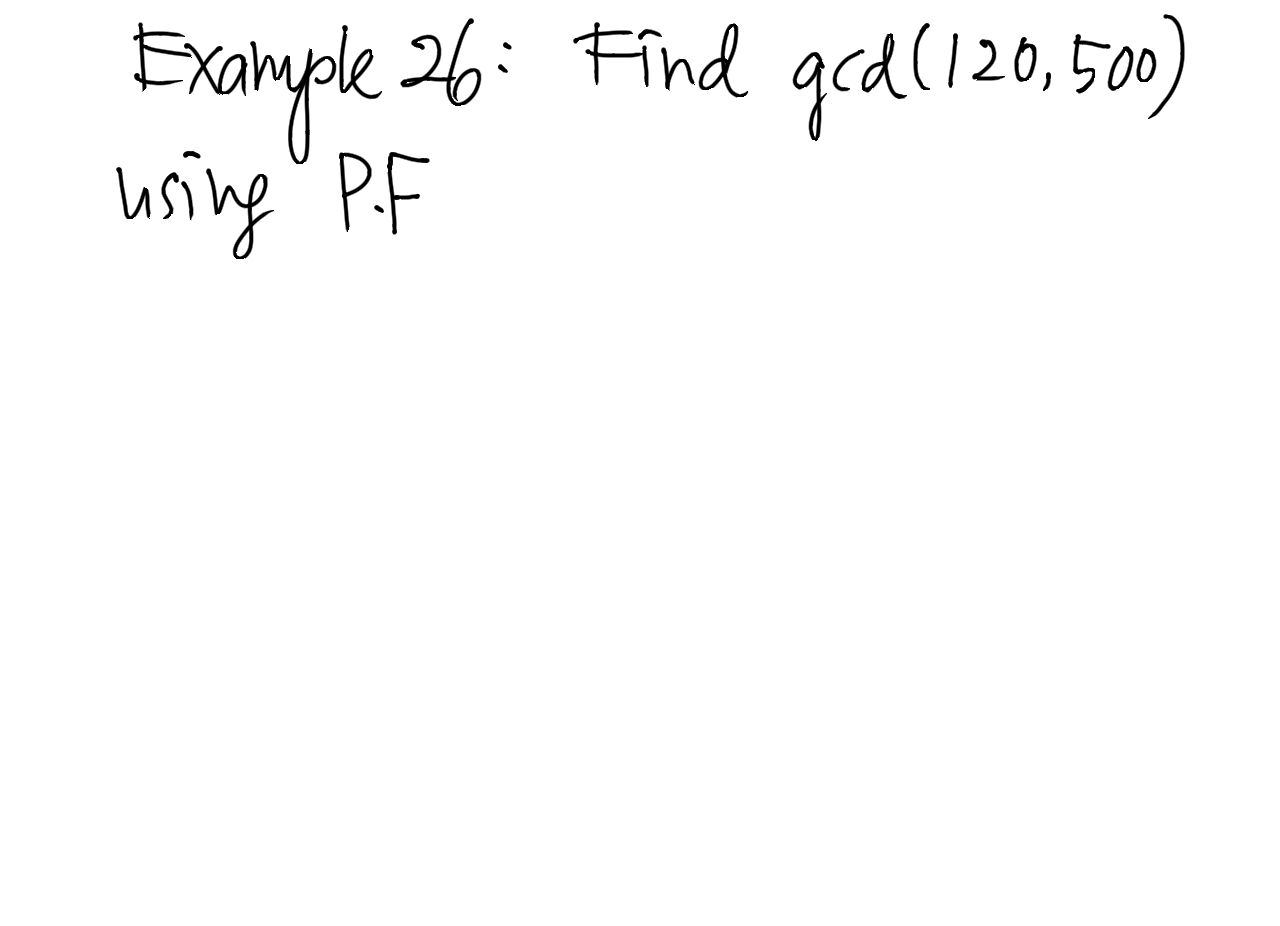 Example 26: Find gcd(120,500)
using P.F